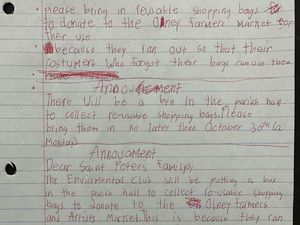 please bring in reusable shopping bags
to donate to the Olney farmers Market for
their use
because they ran out so that their
costumers who forgot their bags can use them
Annoucment
There will be a bin in the parish hall
to collect reusable shopping bags. Please
bring them in no later than October 30th (a
Monday)
Annoucment
Dear Saint Peters Family,
The Enviromental Club will be putting a box
in the parish hall to collect re-usable shopping
bags to donate to the Olney farmers
and Artists Market. This is because they ran